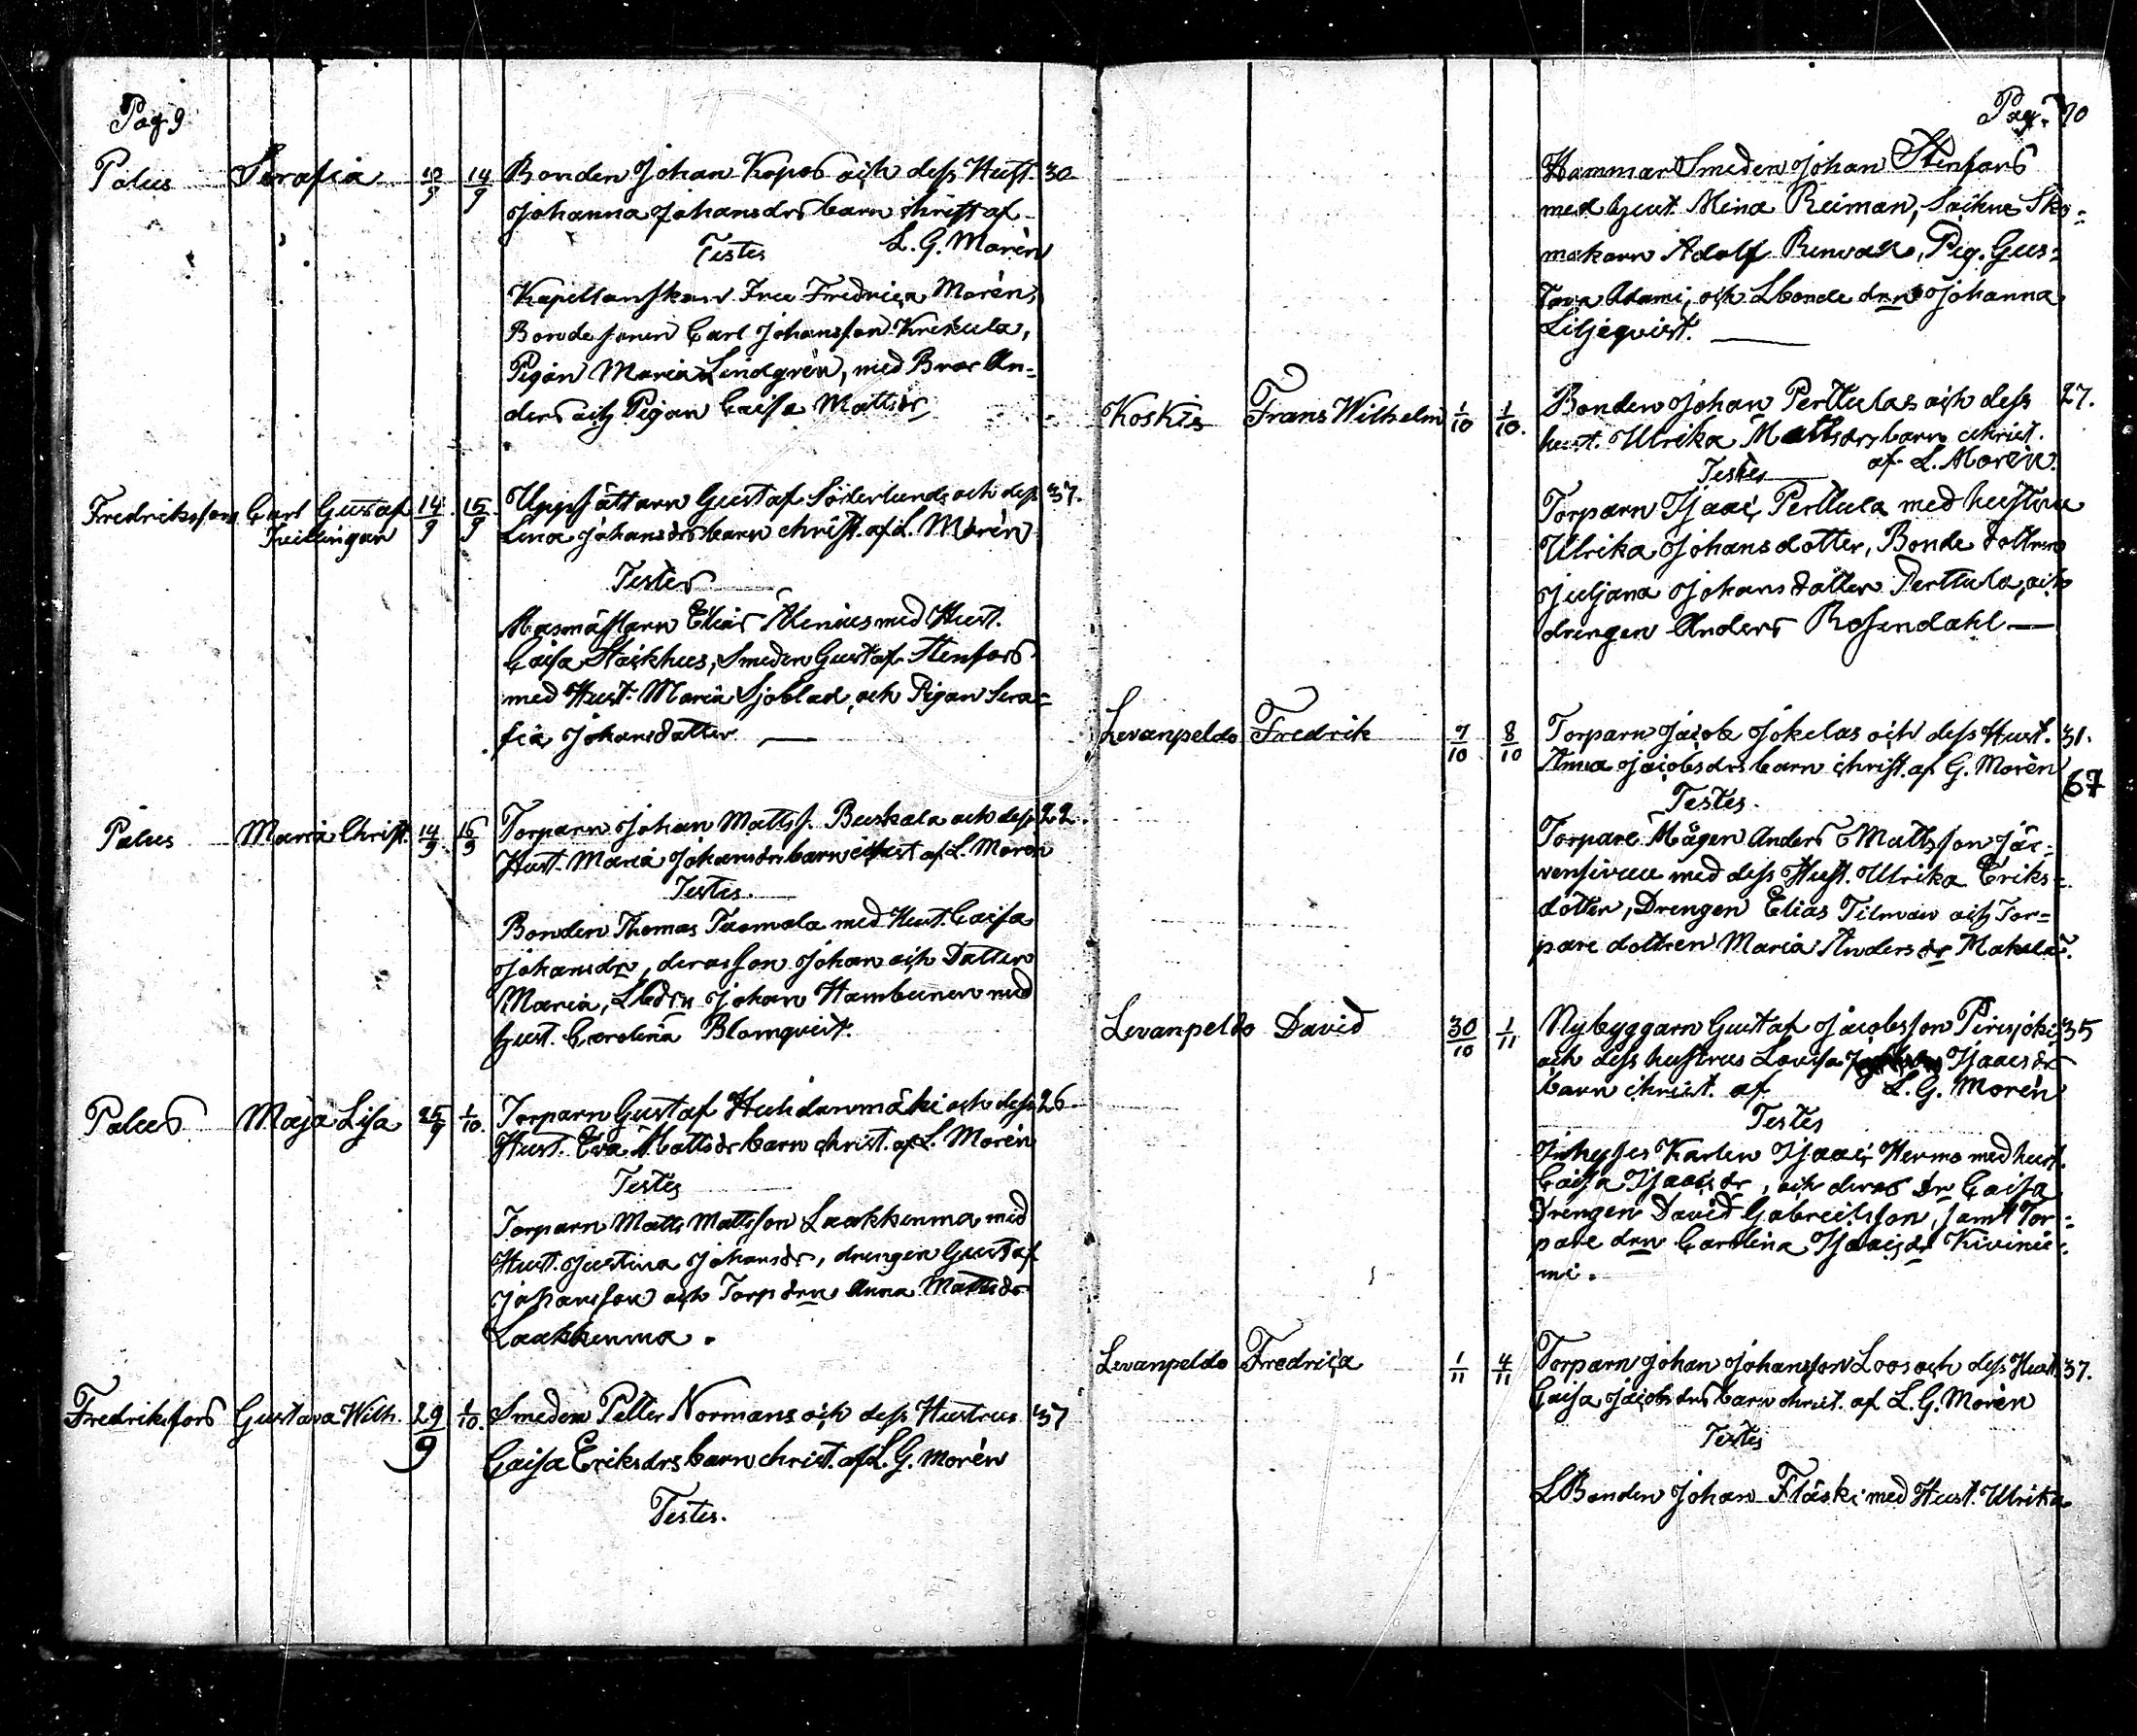 Pag 9
Palus Serafia 12/9 14/9 Bonden Johan Kapos och dess Hust. 30
Johanna Johansdrs barn christ af
Testes L. G. Morèn
Kapellanskan Fru Fredrica Morèn,
Bondesonen Carl Johansson Krekula,
Pigan Maria Lindgrèn, med Bror An=
ders och Pigan Caisa Mattsdr
Fredriksfors Carl Gustaf 14/9 15/9 Uppsättarn Gustaf Söderlunds och dess 37.
Tvillingar Lena Johansdrs barn christ. af L. Morèn
Testes
Masmästarn Elias Alenius med Hust.
Caisa Stäckhus, Smeden Gustaf Stenfors
med Hust. Maria Sjöblad, och Pigan Sera=
fia Johansdotter
Palus Maria Christ. 14/9 16/9 Torparn Johan Mattss. Buskala och dess 22.
Hust. Maria Johansdrs barn christ af L. Morèn
Testes.
Bonden Thomas Tuomala med Hust. Caisa
Johansdr, deras son Johan och Dotter
Maria, Johan Hambunen med
Hust. Carolina Blomqvist.
Palus Maja Lisa 25/9 1/10. Torparn Gustaf Huhdanmäki och dess 26
Hust. Eva Mattsdrs barn christ. af L. Morèn
Testes
Torparn Matts Mattsson Laakkenma med
Hust. Justina Johansdr, drengen Gustaf
Johansson och Torp drn Anna Mattsdr
Laakkenma.
Fredriksfors Gustava Wilh. 29/9 1/10. Smeden Petter Normans och dess Hustrus 37
Caisa Eriksdrs barn christ. af L. G. Morèn
Testes.
Pag. 10
Hammar Smeden Johan Stenfors
med Hust. Mina Reiman, Sko=
makarn Adolf Pig. Gus=
tava Adami, och Lbonde drn Johanna
Liljeqvist.
Koskis Frans Wilhelm 1/10 1/10. Bonden Johan Perttulas och dess 27.
hust. Ulrika Mattsdrs barn christ.
Testes af L. Morèn.
Torparn Isaac Perttula med hustru
Ulrika Johansdotter, Bonde dottren
Juljana Johansdotter Perttula, och
drengen Anders Rosendahl
Levanpeldo Fredrik 7/10 8/10 Torparn Jacob Jokelas och dess Hust. 31.
Anna Jacobsdrs barn christ. af G. Morèn
67
Testes.
Torpare Mågen Anders Mattsson Jär=
vensivuu med dess Hust. Ulrika Eriks=
dotter, Drengen Elias Tilman och Tor=
pare dottren Maria Andersdr Makela.
Levanpeldo David 30/10 1/11 Nybyggarn Gustaf Jacobsson Pirisjoki 35
och dess hustrus Lovisa Isaacsdr
barn christ. af L. G. Morèn
Testes
Inhyses Karlen Isaac Hermo med hust.
Caisa Isaacsdr, och deras dr Caisa
Drengen David Gabrielsson, samt Tor=
pare drn Carolina Isaacsdr Kivinie=
mi.
Levanpeldo Fredrica 1/11 4/11 Torparn Johan Johansson Loos och dess Hust 37.
Caisa Jacobsdrs barn christ. af L. G. Morèn
Testes
LBonden Johan Fläski med Hust. Ulrika